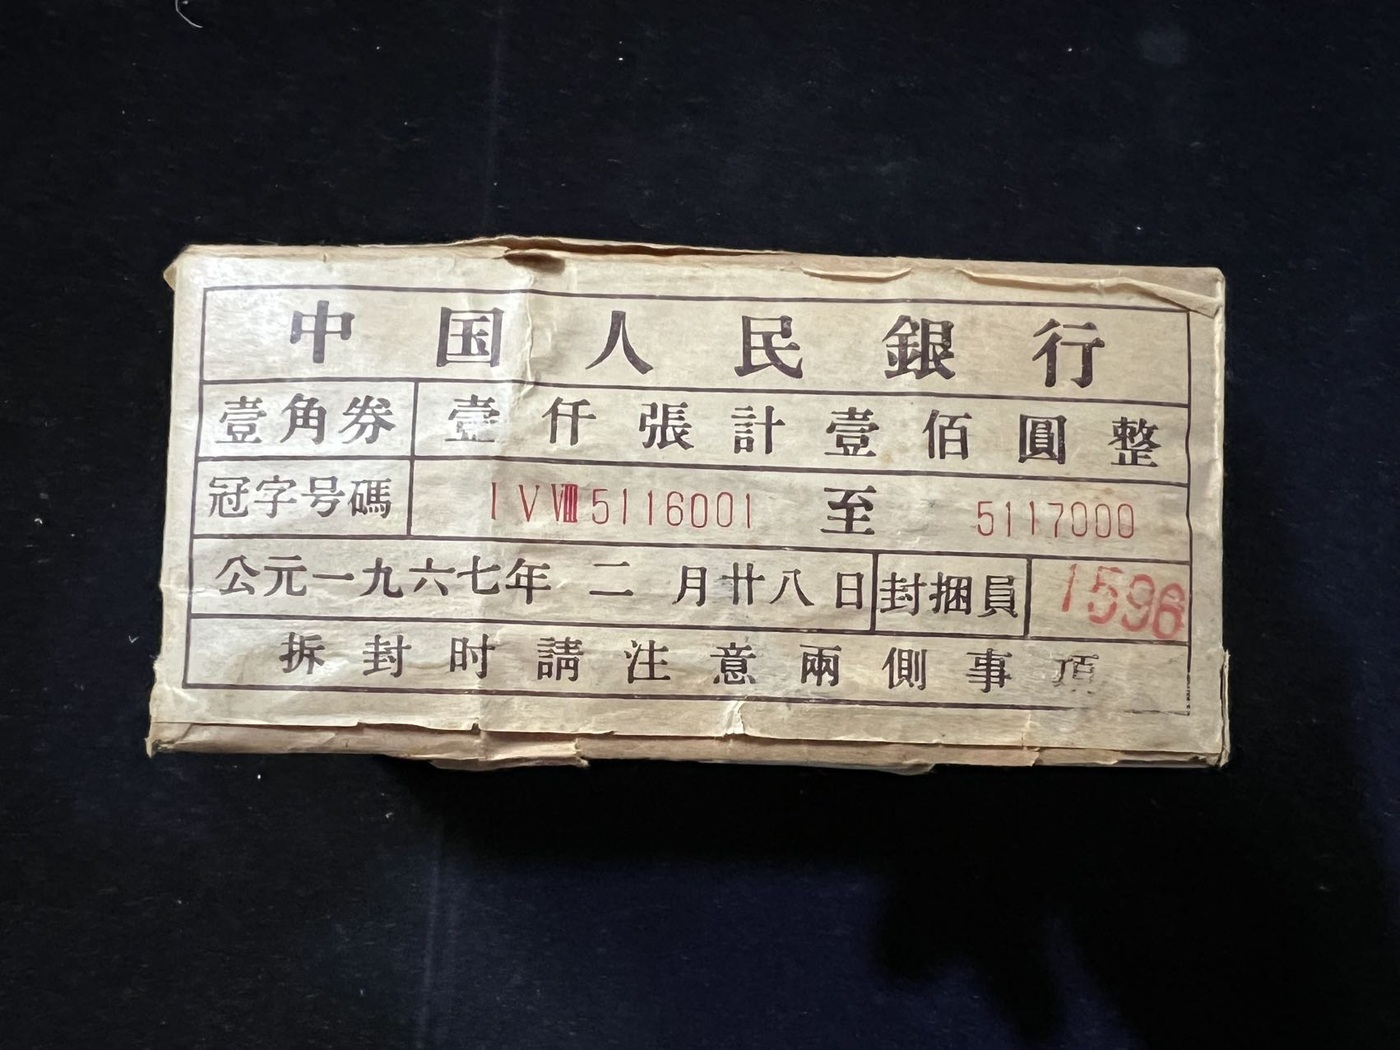 中国人民銀行
壹角券 壹仟張計壹佰圓整
冠字号碼 I V Ⅷ 5116001 至 5117000
公元一九六七年 二 月廿八日 封捆員 1596
拆封时請注意兩側事項